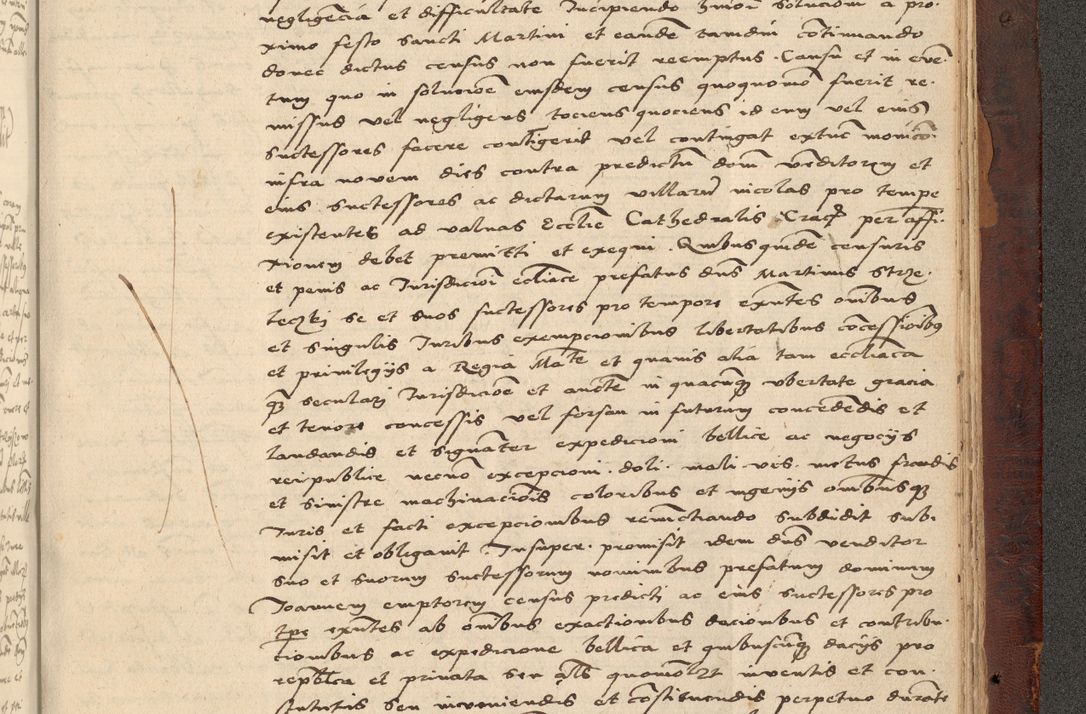 negligencia et difficultate Incipiendo huiusmodi solucionem a pro-
ximo festo Sancti Martini et eandem tamdiu continuando
donec dictus census non fuerit reemptus. Casu et in even-
tum quo in solucioe eiusdem census quoquomo fuerit re-
missus vel negligens tociens quociens id eum vel eius
successores facere contigerit vel contingat extunc
infra novem dies contra predictu dom venditorem et
eius successores ac dictarum villaru incolas pro tempe
existentes ad valvas Ecclie Cathedralis Crac per affi-
xionem debet premitti et exequi. Quibusquide censuris
et penis ac Jurisdicioi eccliace prefatus dns Martinus Strze-
leczki se et suos successores pro tempore exntes omibus
et singulis Juribus exempcionibus libertatibus cocessioibus
et privilegys a Regia Mate et quavis alia tam eccliaca
q seculari Jurisdicioe et aucte in quacunq ubertate gracia
et tenore concessis vel forsan in futurum concededis et
laudandis et signater expedicioni bellice ac negocys
reipublice necno excepcioni. doli. mali. vis. metus fraudis
et sinistre machinaciois coloribus et ingenys omibusq
Juris et facti excepcionibus renuctiando subdidit sub-
misit et obligavit. Insuper. promisit idem dns venditor
suo et suorum successorum nominibus prefatum dominum
Joannem emptorem census predicti ac eius successores pro
tpe exntes ab omibus exactionibus dacionibus et contribu-
tionibus ac expedicione bellica et quibuscuq dacys pro
republca et privata seu als quomolzt inventis et con-
stitutis seu inveniendis et costituendis perpetuo durate